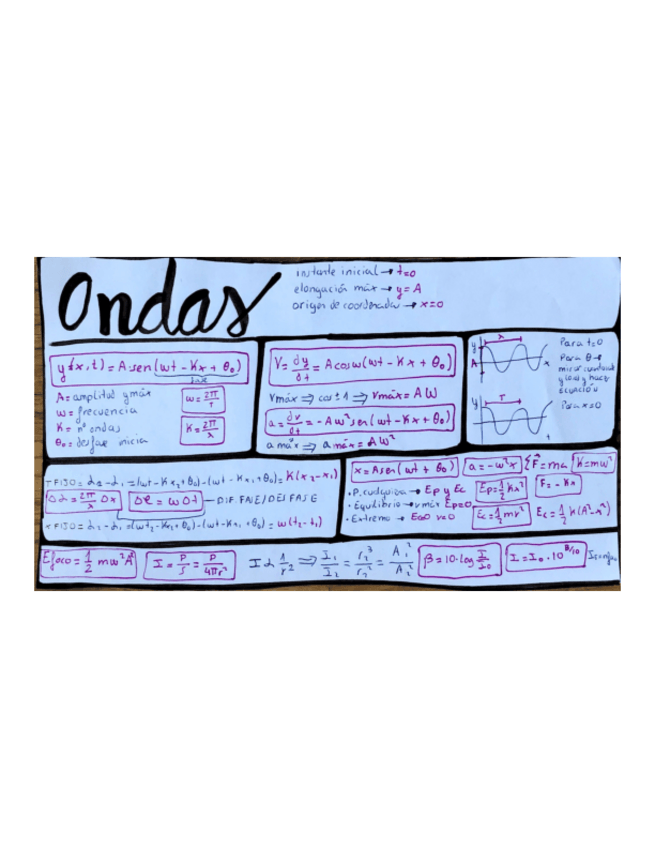 Ondas
instante inicial → t=0
elongación máx → y = A
origen de coordenadas → x=0
y(x,t) = A sen(ωt - Kx + θ₀)
fase
A = amplitud y máx
ω = frecuencia
K = nº ondas
θ₀ = desfase inicia
ω = 2π/T
K = 2π/λ
V = dy/dt = A cos ω(ωt - Kx + θ₀)
vmáx ⇒ cos±1 ⇒ vmáx = Aω
a = dv/dt = -Aω² sen(ωt - Kx + θ₀)
a máx ⇒ a máx = Aω²
y λ A x
y T t
Para t=0
Para θ→
mirar cuando
y haces
ECUACIÓN
Para x=0
T FIJO = α₂ - α₁ = (ωt - Kx₂ + θ₀) - (ωt - Kx₁ + θ₀) = K(x₂ - x₁)
Δα = 2π/λ Δx
Δφ = ωΔt — DIF FASE/DESFASE
x FIJO = α₂ - α₁ = (ωt₂ - Kx₂ + θ₀) - (ωt - Kx₁ + θ₀) = ω(t₂ - t₁)
x = A sen(ωt + θ₀)
a = -ω²x
F = ma
K = mω²
• P. cualquiera → Ep y Ec
Ep = ½ Kx²
F = -Kx
• Equilibrio → v máx Ep=0
• Extremo → Ec=0 v=0
Ec = ½ mv²
Ec = ½ K(A² - x²)
E foco = ½ mω²A²
I = P/S = P/4πr²
I α 1/r² ⇒ I₁/I₂ = r₂²/r₁² = A₁²/A₂²
β = 10·log I/I₀
I = I₀ · 10^(β/10)